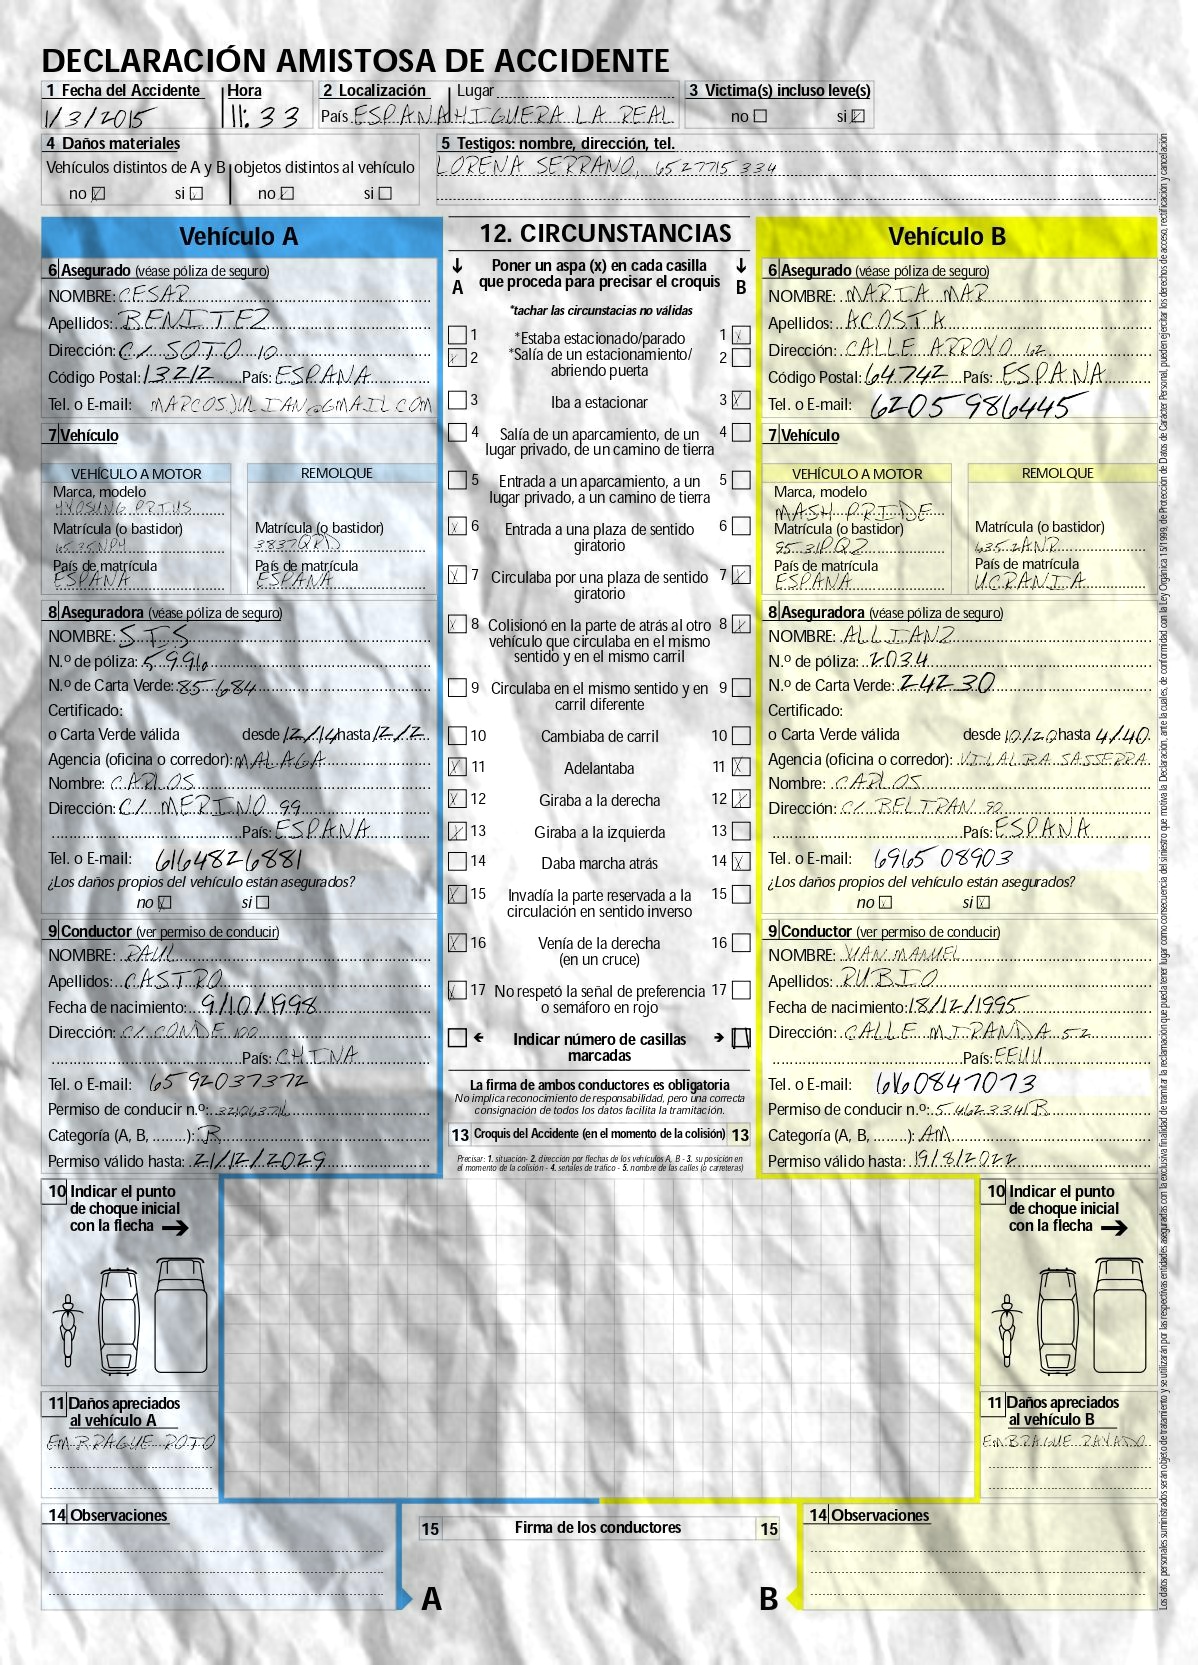 DECLARACIÓN AMISTOSA DE ACCIDENTE
1 Fecha del Accidente Hora 2 Localización Lugar 3 Victima(s) incluso leve(s)
1/3/2015 11:33 País ESPANA HIGUERA LA REAL no si
4 Daños materiales
Vehículos distintos de A y B objetos distintos al vehículo
no si no si
5 Testigos: nombre, dirección, tel.
LORENA SERRANO, 652 7715 334
Vehículo A
6 Asegurado (véase póliza de seguro)
NOMBRE: CESAR
Apellidos: BENITEZ
Dirección: C/. SOTO 10
Código Postal: 13212 País: ESPANA
Tel. o E-mail: MARCOSJULIAN@GMAIL.COM
7 Vehículo
VEHÍCULO A MOTOR REMOLQUE
Marca, modelo
HYOSUNG PRIUS
Matrícula (o bastidor) Matrícula (o bastidor)
6535NPH 3837QRD
País de matrícula País de matrícula
ESPANA ESPANA
8 Aseguradora (véase póliza de seguro)
NOMBRE: STS
N.º de póliza: 5.996
N.º de Carta Verde: 85 684
Certificado:
o Carta Verde válida desde 12/14 hasta 12/2
Agencia (oficina o corredor): MALAGA
Nombre: CARLOS
Dirección: C/. MERINO 99
País: ESPANA
Tel. o E-mail: 6164826881
¿Los daños propios del vehículo están asegurados?
no si
9 Conductor (ver permiso de conducir)
NOMBRE: PAUL
Apellidos: CASTRO
Fecha de nacimiento: 9/10/1998
Dirección: C/. CONDE 100
País: CHINA
Tel. o E-mail: 65 92037372
Permiso de conducir n.º:
Categoría (A, B, ........): B
Permiso válido hasta: 21/12/2029
10 Indicar el punto
de choque inicial
con la flecha
11 Daños apreciados
al vehículo A
EMBRAGUE ROTO
14 Observaciones
12. CIRCUNSTANCIAS
A Poner un aspa (x) en cada casilla B
que proceda para precisar el croquis
*tachar las circunstacias no válidas
1 *Estaba estacionado/parado 1
2 *Salía de un estacionamiento/ 2
abriendo puerta
3 Iba a estacionar 3
4 Salía de un aparcamiento, de un 4
lugar privado, de un camino de tierra
5 Entrada a un aparcamiento, a un 5
lugar privado, a un camino de tierra
6 Entrada a una plaza de sentido 6
giratorio
7 Circulaba por una plaza de sentido 7
giratorio
8 Colisionó en la parte de atrás al otro 8
vehículo que circulaba en el mismo
sentido y en el mismo carril
9 Circulaba en el mismo sentido y en 9
carril diferente
10 Cambiaba de carril 10
11 Adelantaba 11
12 Giraba a la derecha 12
13 Giraba a la izquierda 13
14 Daba marcha atrás 14
15 Invadía la parte reservada a la 15
circulación en sentido inverso
16 Venía de la derecha 16
(en un cruce)
17 No respetó la señal de preferencia 17
o semáforo en rojo
Indicar número de casillas
marcadas
La firma de ambos conductores es obligatoria
No implica reconocimiento de responsabilidad, pero una correcta
consignación de todos los datos facilita la tramitación.
13 Croquis del Accidente (en el momento de la colisión) 13
Precisar: 1. situación- 2. dirección por flechas de los vehículos A, B - 3. su posición en
el momento de la colisión - 4. señales de tráfico - 5. nombre de las calles (o carreteras)
15 Firma de los conductores 15
A B
Vehículo B
6 Asegurado (véase póliza de seguro)
NOMBRE: MARIA MAR
Apellidos: ACOSTA
Dirección: CALLE ARROYO 62
Código Postal: 64742 País: ESPANA
Tel. o E-mail: 6205 986445
7 Vehículo
VEHÍCULO A MOTOR REMOLQUE
Marca, modelo
MASH PRIDE
Matrícula (o bastidor) Matrícula (o bastidor)
9531PQZ 6352ANR
País de matrícula País de matrícula
ESPANA UCRANIA
8 Aseguradora (véase póliza de seguro)
NOMBRE: ALLIANZ
N.º de póliza: 2034
N.º de Carta Verde: 24230
Certificado:
o Carta Verde válida desde 10/20 hasta 4/40
Agencia (oficina o corredor): VILALBA SASSERRA
Nombre: CARLOS
Dirección: C/. BELTRAN 90
País: ESPANA
Tel. o E-mail: 6965 08903
¿Los daños propios del vehículo están asegurados?
no si
9 Conductor (ver permiso de conducir)
NOMBRE: MANUEL
Apellidos: RUBIO
Fecha de nacimiento: 18/12/1995
Dirección: CALLE MIRANDA 52
País: EEUU
Tel. o E-mail: 6160847073
Permiso de conducir n.º:
Categoría (A, B, ........): AM
Permiso válido hasta: 19/8/2022
10 Indicar el punto
de choque inicial
con la flecha
11 Daños apreciados
al vehículo B
EMBRAGUE RAYADO
14 Observaciones
Los datos personales suministrados serán objeto de tratamiento y se utilizarán por las respectivas entidades aseguradas con la exclusiva finalidad de tramitar la reclamación que pueda tener lugar como consecuencia del siniestro que motiva la Declaración, ante la cuales, de conformidad con la Ley Orgánica 15/1999, de Protección de Datos de Carácter Personal, pueden ejercitar los derechos de acceso, rectificación y cancelación